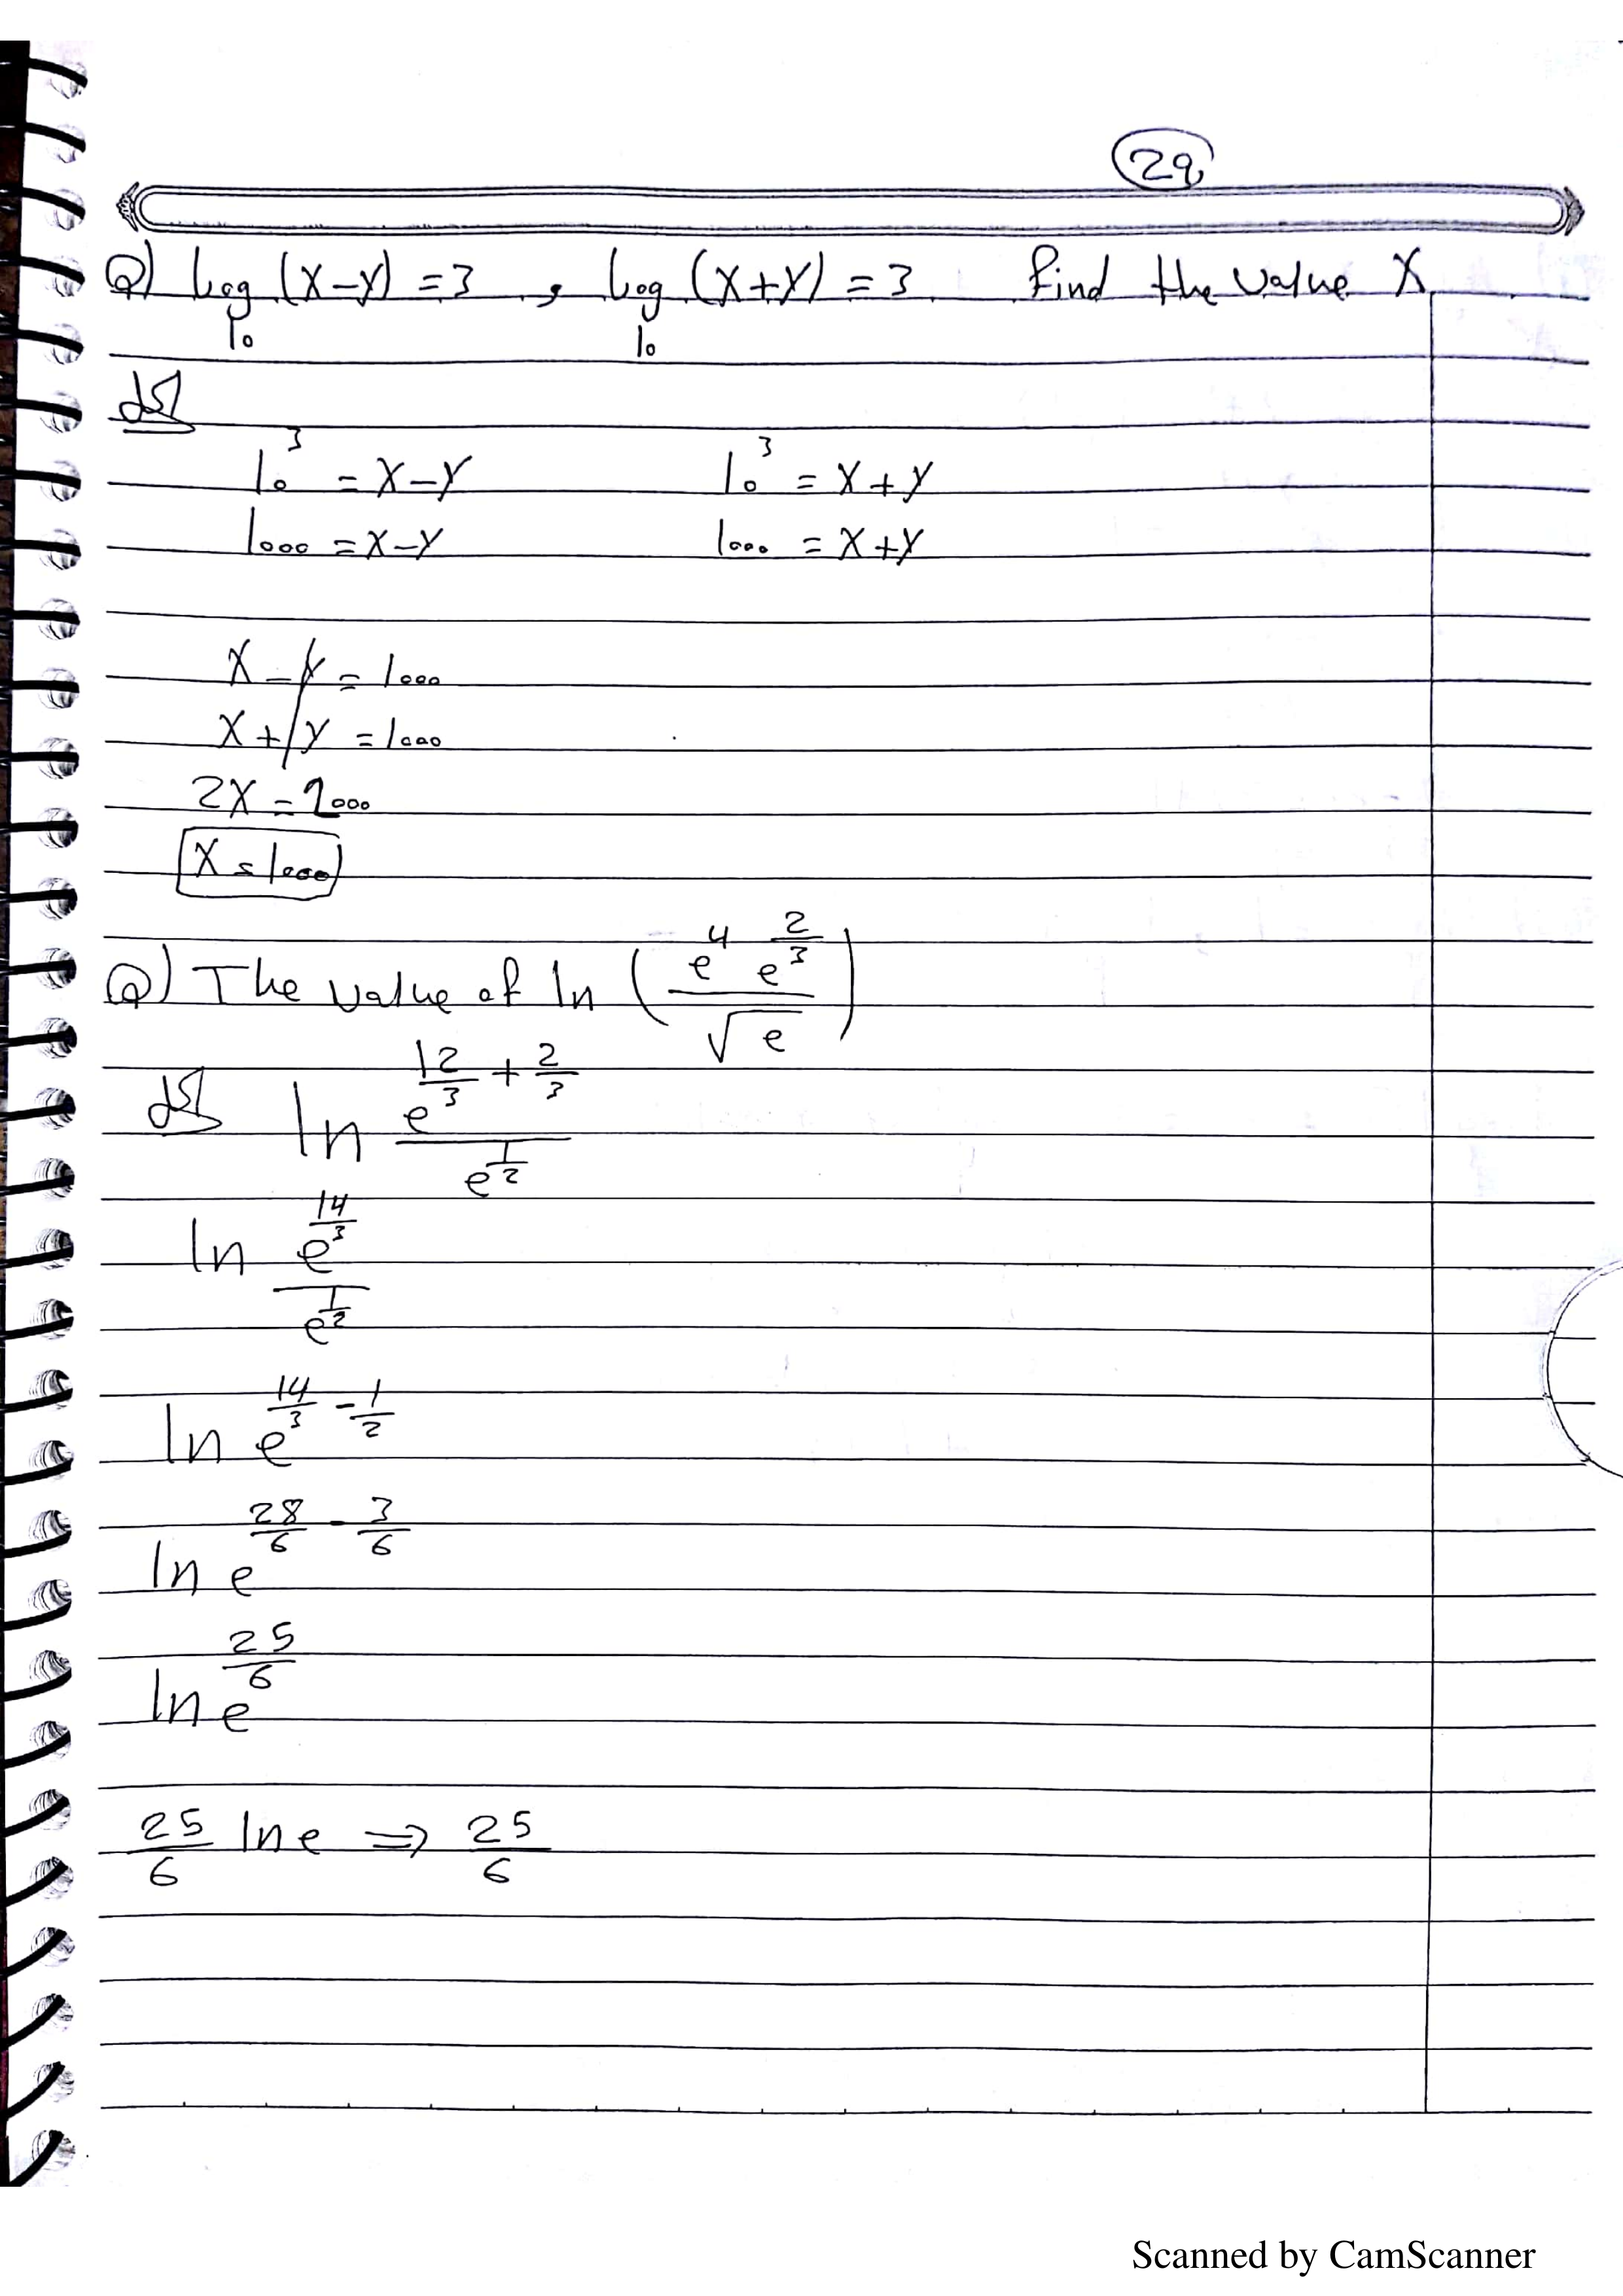 29
Q) Log₁₀ (X-Y) = 3 , Log₁₀ (X+Y) = 3 Find the value X
الحل
10³ = X-Y 10³ = X+Y
1000 = X-Y 1000 = X+Y
X-Y = 1000
X+Y = 1000
2X = 2000
X = 1000
Q) The value of ln (e⁴ e^(2/3) / √e)
الحل ln e^(12/3 + 2/3) / e^(1/2)
ln e^(14/3) / e^(1/2)
ln e^(14/3 - 1/2)
ln e^(28/6 - 3/6)
ln e^(25/6)
25/6 ln e ⇒ 25/6
Scanned by CamScanner